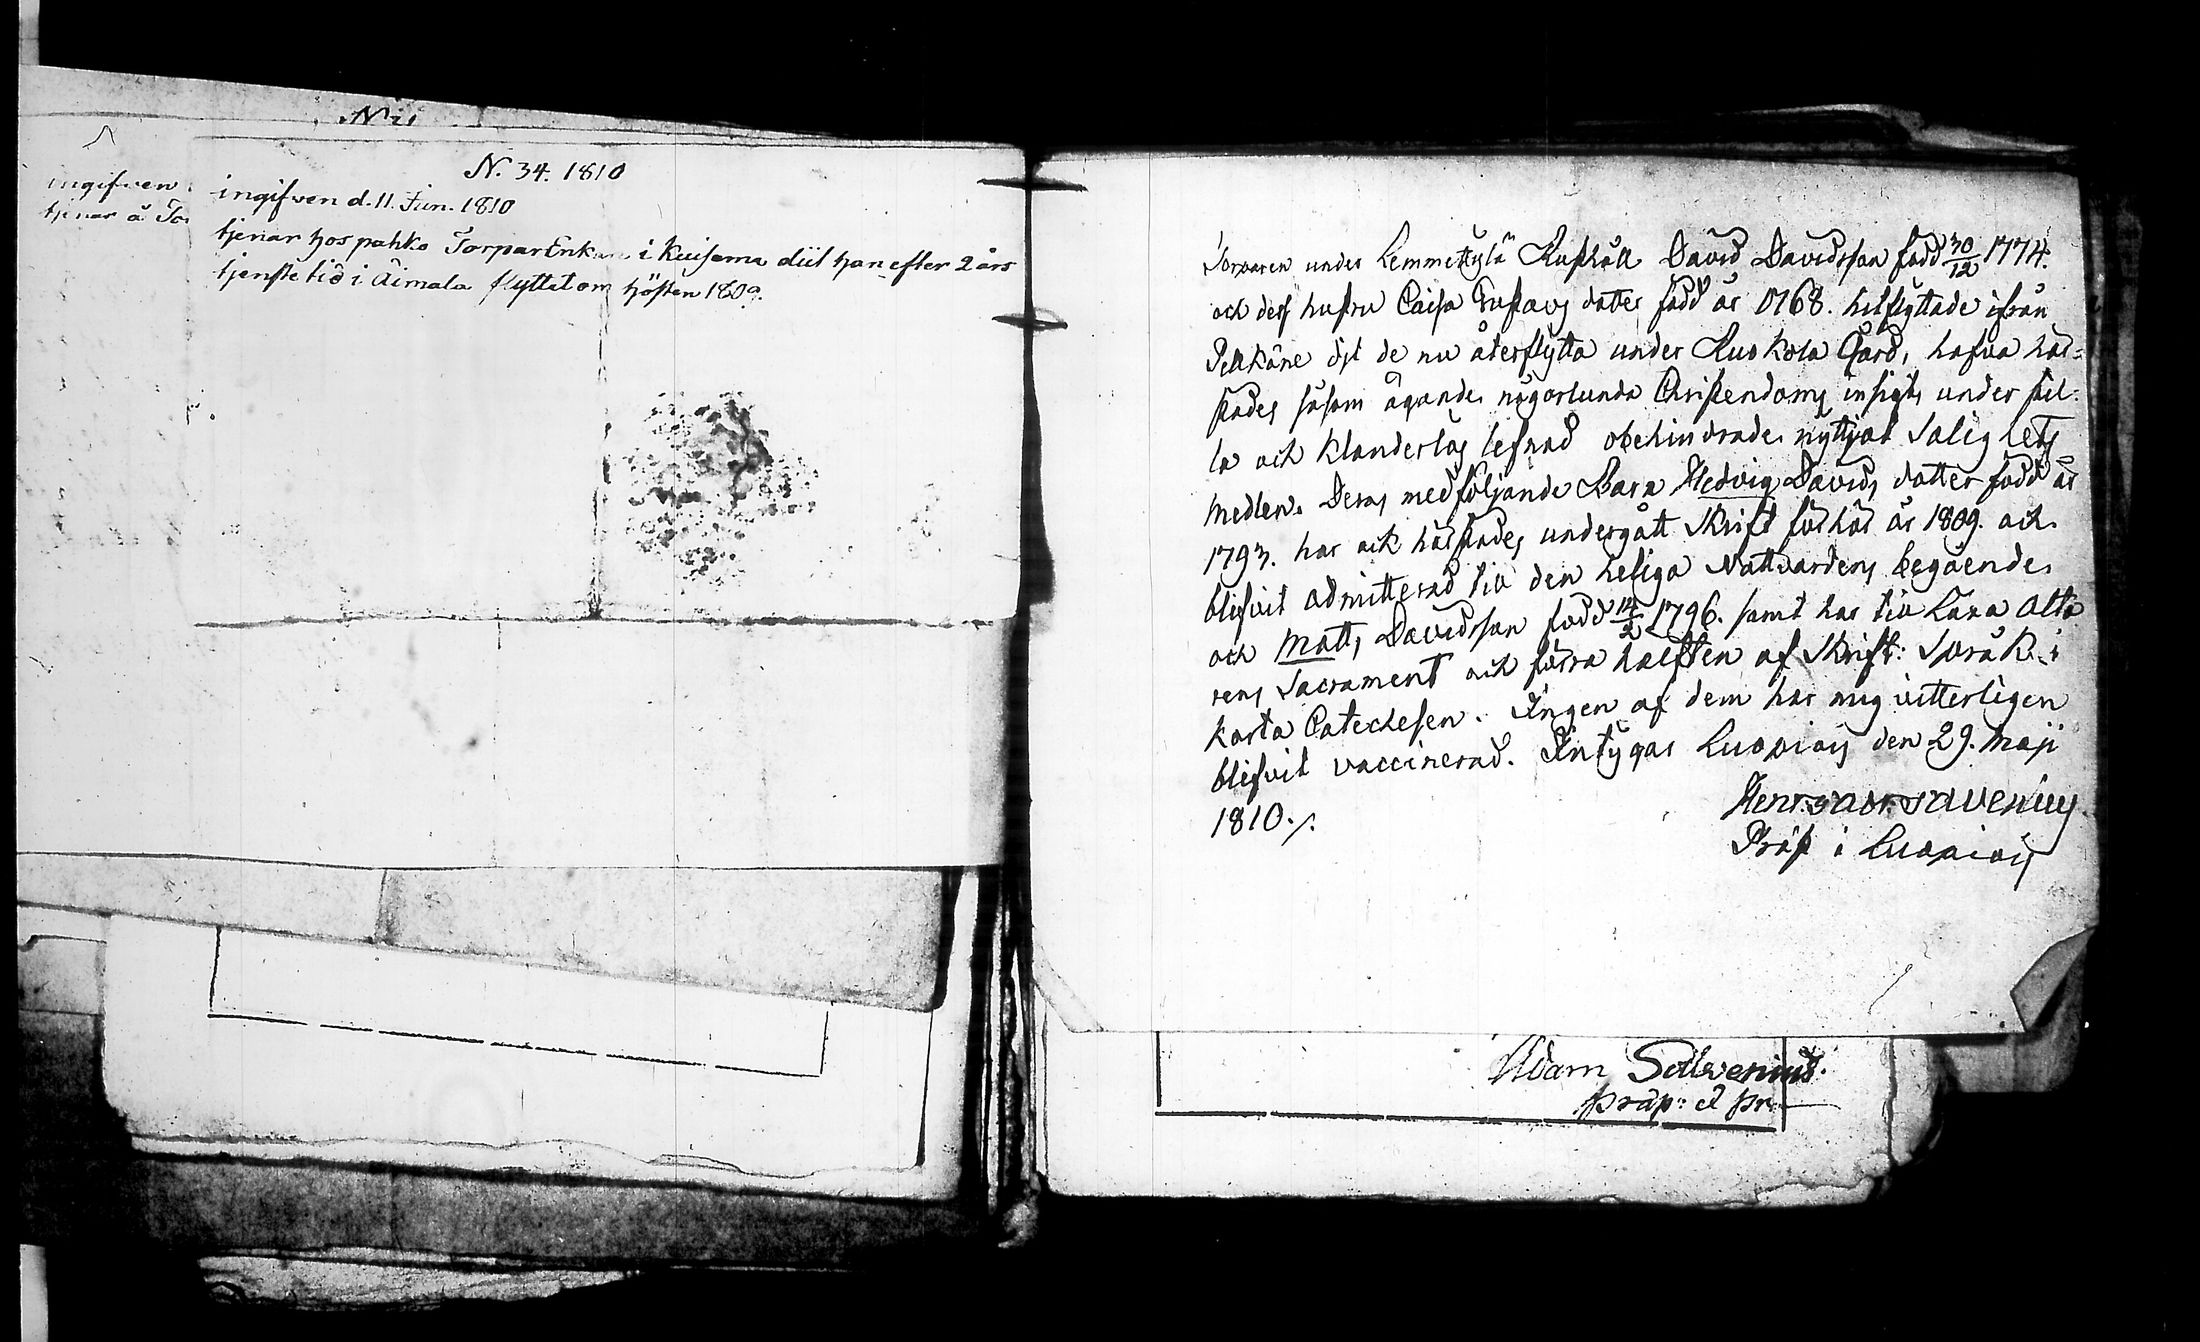 N
ingifven
tjenar å
N. 34. 1810
ingifven d. 11. Jun. 1810
tjenar hos pahko TorparEnkan i Kuisema dit han efter 2 års
tjenste tid i Äimala flyttat om hösten 1809.
Torparen under Lemmettylä Rusthåll David Davidsson född 30/12 1774.
och dess hustru Caisa Gustavs dotter född år 1768. hitflyttade ifrån
Pelkäne dit de nu återflytta under Ruokola Gård, hafva här-
stades såsom ägande någorlunda Christendoms insigt, under stil-
la och klanderlös lefnad obehindrade nyttjat Salighets
medlen. Deras medföljande Barn Hedvig Davids dotter född år
1793. har ock härstades undergått Skrift förhör år 1809. och
blifvit admitterad till den heliga Nattvardens begående
och Matts Davidsson född 14/2 1796. samt har till Lära Alta
rens Sacrament och förra hälften af Skrift: Språk: i
korta Catechesen. Ingen af dem har mig vitterligen
blifvit vaccinerad. Intygar Luopiois den 29. Maji
1810./.
Salvenius.
Präst i Luopiois
Adam Salvenius.